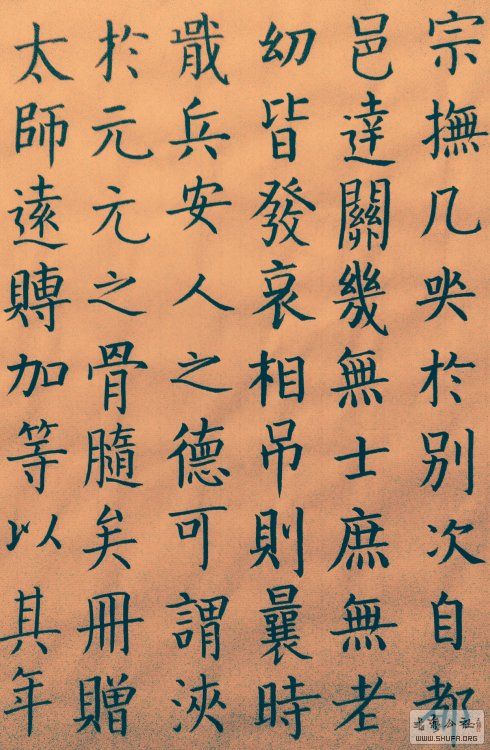 宗撫几哭於別次自都
邑達關幾無士庶無老
幼皆發哀相吊則曩時
戢兵安人之德可謂浹
於元元之骨髓矣冊贈
太師遠賻加等以其年
www.SHUFA.ORG